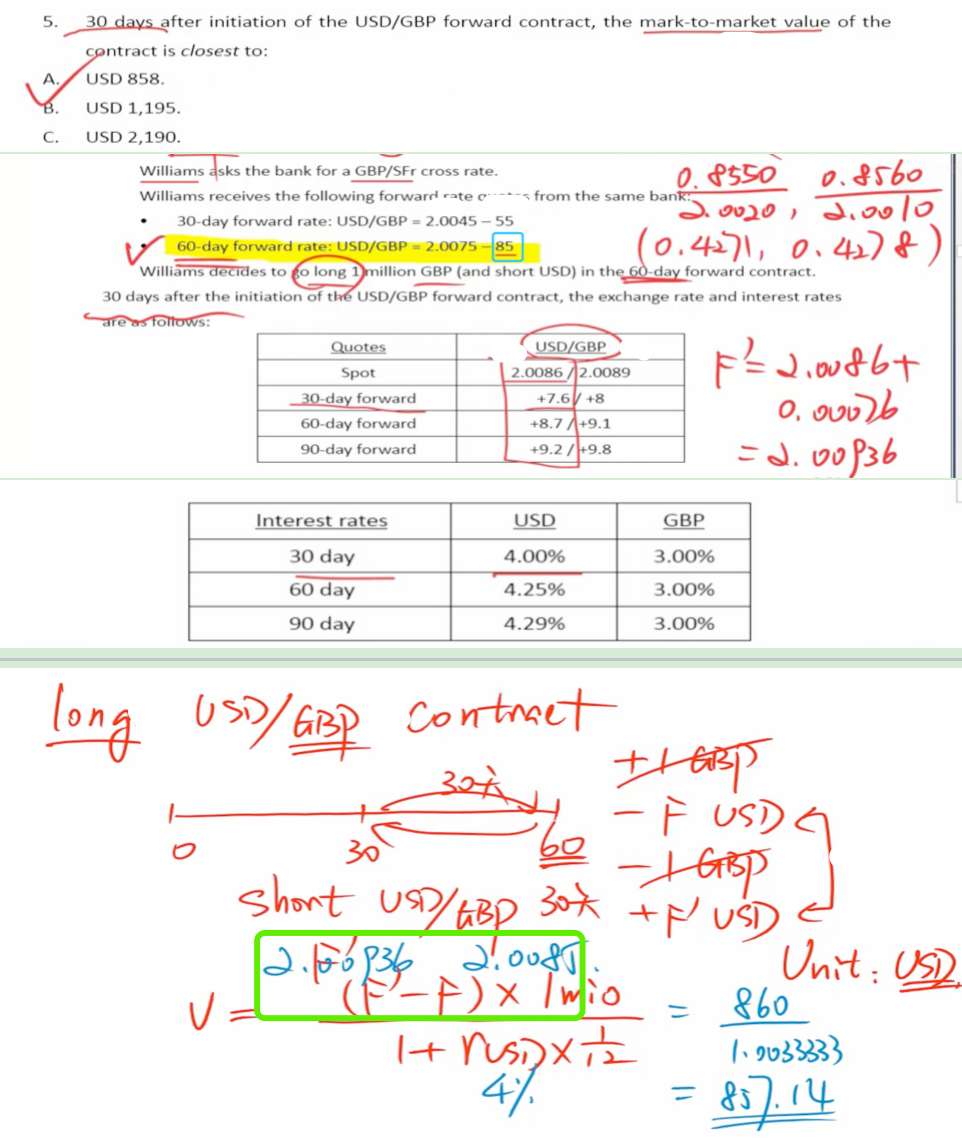 5. 30 days after initiation of the USD/GBP forward contract, the mark-to-market value of the
contract is closest to:
A. USD 858.
B. USD 1,195.
C. USD 2,190.
Williams asks the bank for a GBP/SFr cross rate.
Williams receives the following forward rate from the same bank:
• 30-day forward rate: USD/GBP = 2.0045 – 55
60-day forward rate: USD/GBP = 2.0075 – 85
Williams decides to go long 1 million GBP (and short USD) in the 60-day forward contract.
30 days after the initiation of the USD/GBP forward contract, the exchange rate and interest rates
are as follows:
0.8550 0.8560
2.0020 , 2.0010
(0.4271, 0.4278)
Quotes USD/GBP
Spot 2.0086 / 2.0089
30-day forward +7.6 / +8
60-day forward +8.7 / +9.1
90-day forward +9.2 / +9.8
F' = 2.0086 +
0.00076
= 2.00936
Interest rates USD GBP
30 day 4.00% 3.00%
60 day 4.25% 3.00%
90 day 4.29% 3.00%
long USD/GBP contract
30天
0 30 60
+1 GBP
- F USD
- 1 GBP
+ F' USD
short USD/GBP 30天
2.00936 2.0085.
Unit: USD.
V = (F' - F) × 1mio = 860
1 + rUSD × 1/12 1.0033333
4%
= 857.14